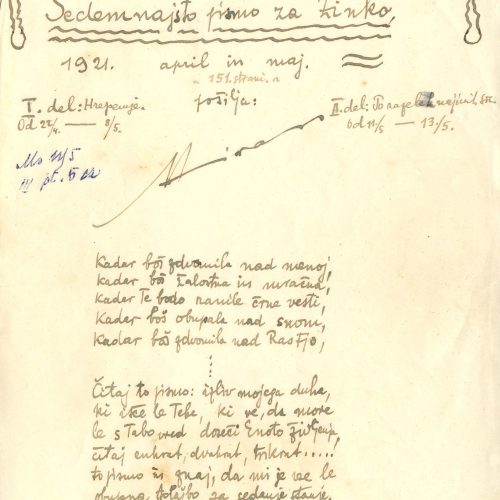 Sedemnajsto pismo za Zinko,
1921. april in maj.
151. strani.
I. del: Hrepenenje. pošilja: II. del: Po
Od 22/4. — 8/5. od 11/5 — 13/5.
Kadar boš zdvomila nad menoj,
kadar boš žalostna in mračna,
kadar Te bodo ranile črne vesti,
kadar boš obupala nad snom,
kadar boš zdvomila nad Rastjo,
Čitaj to pismo: izliv mojega duha,
ki išče le Tebe, ki ve, da more
le s Tabo vred doseči Enoto življenja,
čitaj enkrat, dvakrat, trikrat.....
to pismo in znaj, da mi je vse le
obupna tolažba za sedanje stanje.